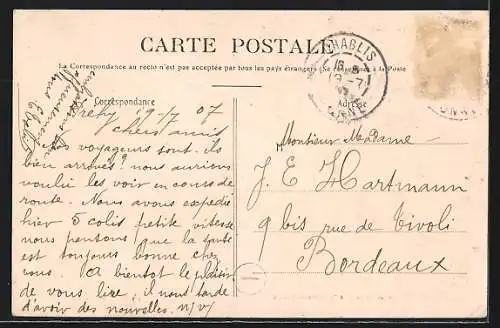 CARTE POSTALE
La Correspondance au recto n'est pas acceptée par tous les pays étrangers (Se renseigner à la Poste
Correspondance
Adresse
CHABLIS
YONNE
Préhy 19-7 07
Chers amis
Les voyageurs sont-ils
bien arrivés? nous aurions
voulu les voir en cours de
route. Nous avons expédié
hier 5 colis petite vitesse
nous pensons que la santé
est toujours bonne chez
vous. A bientôt le plaisir
de vous lire, il nous tarde
d'avoir des nouvelles.
Monsieur Madame
J. E Hartmann
9 bis rue de Tivoli
Bordeaux